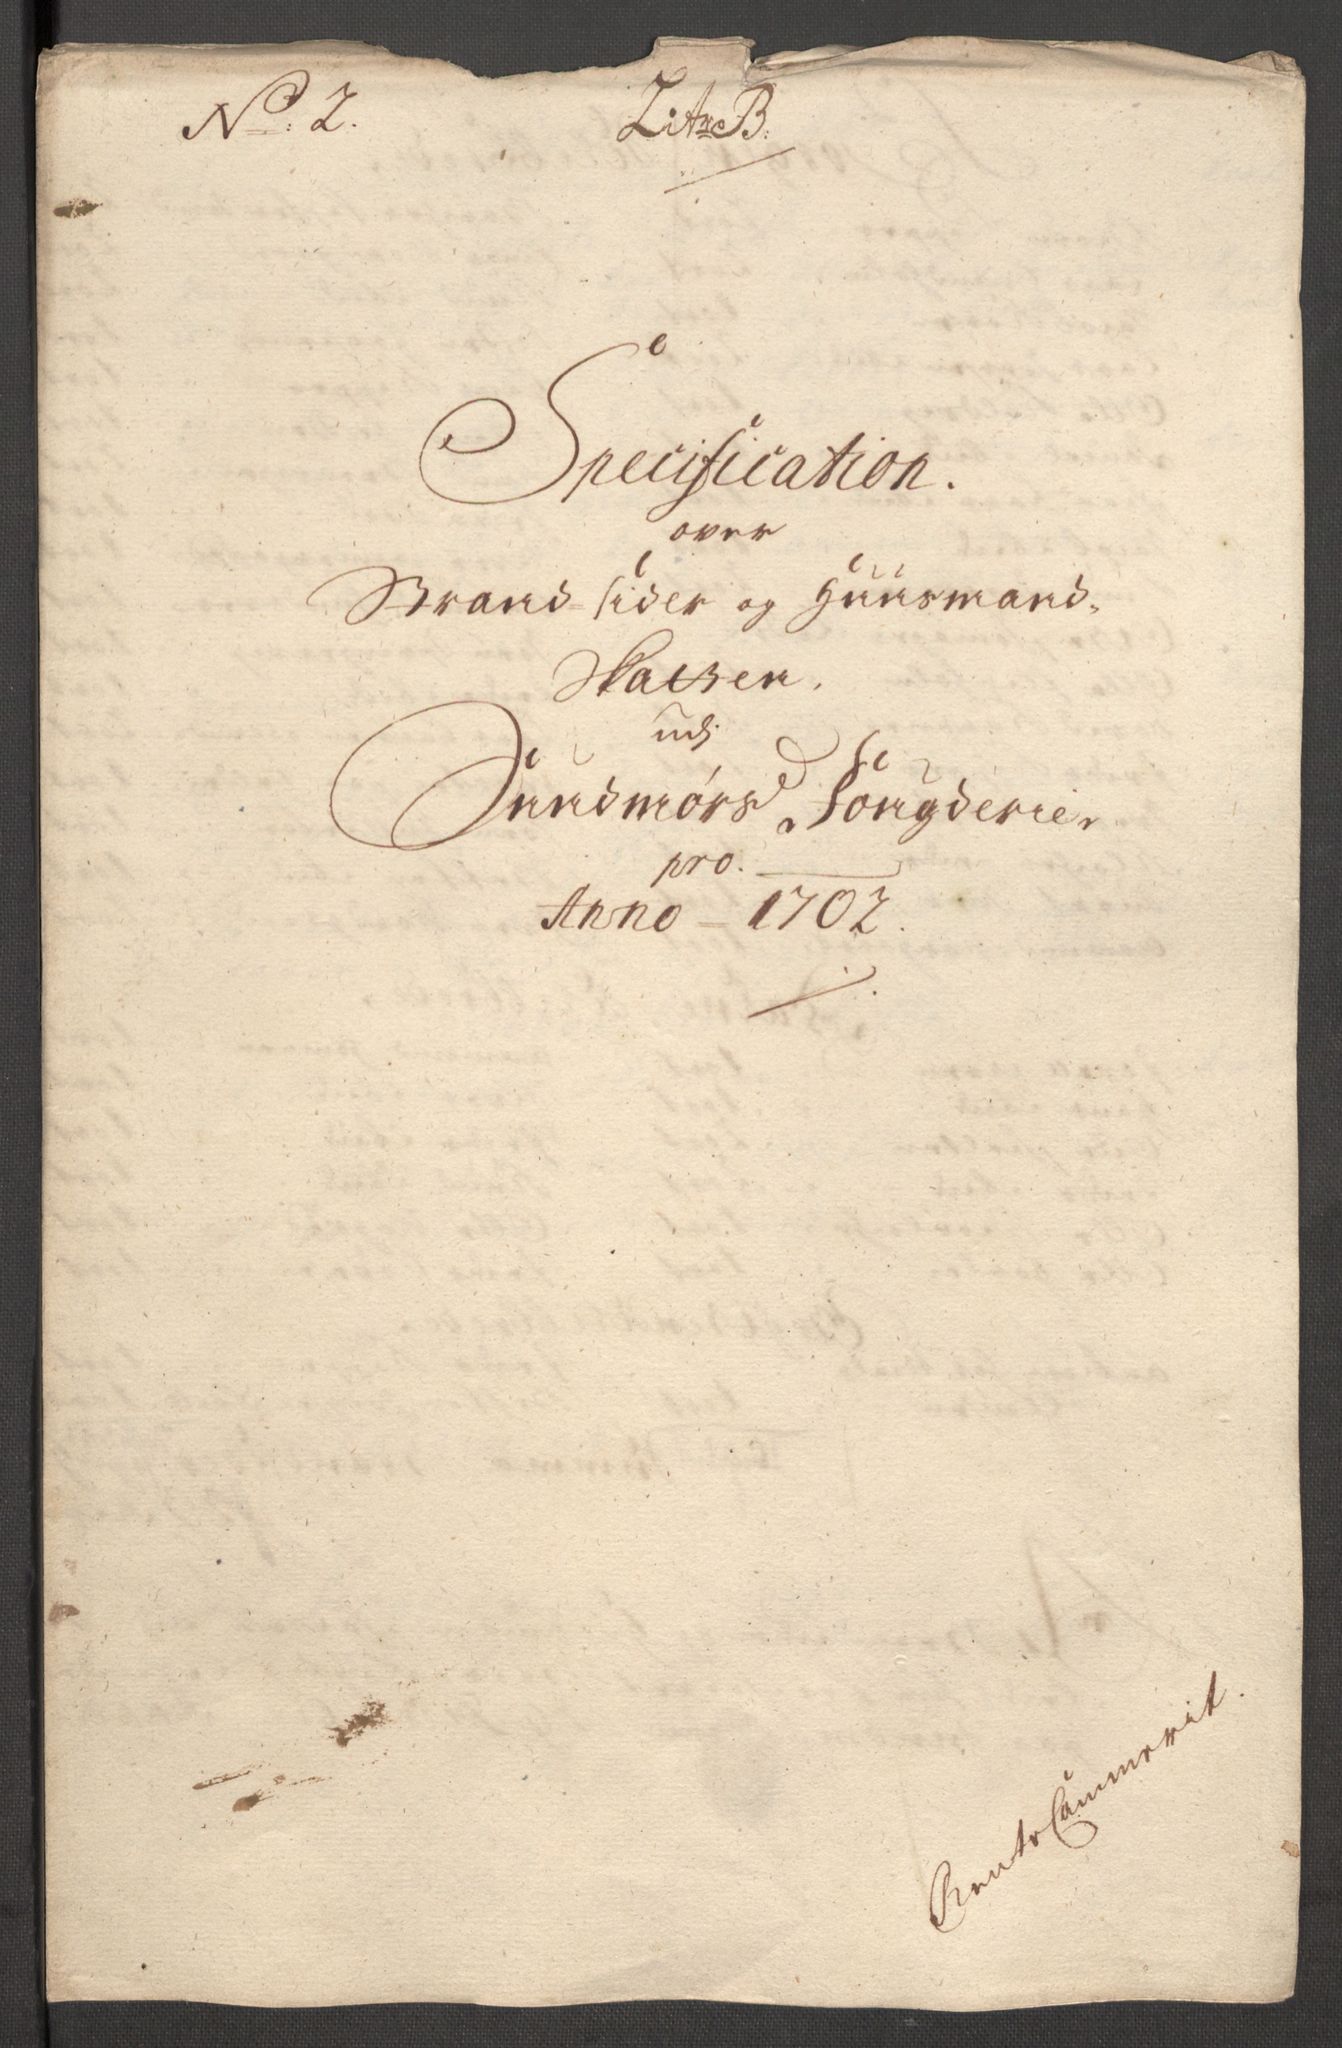 No: 2. Litr: B:
Specification.
over
Brand-sider og Huusmand-
Skatten.
udj
Sundmørs Fougderie,
pro.
Anno - 1702.
Rente Cammerit.